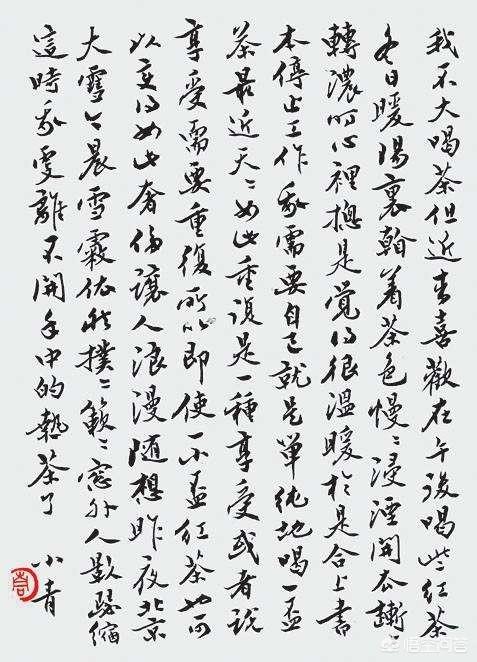 我不大喝茶但近来喜歡在午後喝些红茶
冬日暖陽裏着茶色慢〻浸湮開去漸〻
轉濃心裡總是覺得很溫暖於是合上書
本停止工作我需要自己就是單純地喝一盃
茶最近天〻如此重復是一種享受或者说
享受需要重復所以即使一小盃红茶也可
以变得如此奢侈讓人浪漫随想昨夜北京
大雪今晨雪霰依然撲〻簌〻窓外人影瑟縮
這時我更離不開手中的熱茶了
小青
悟空问答